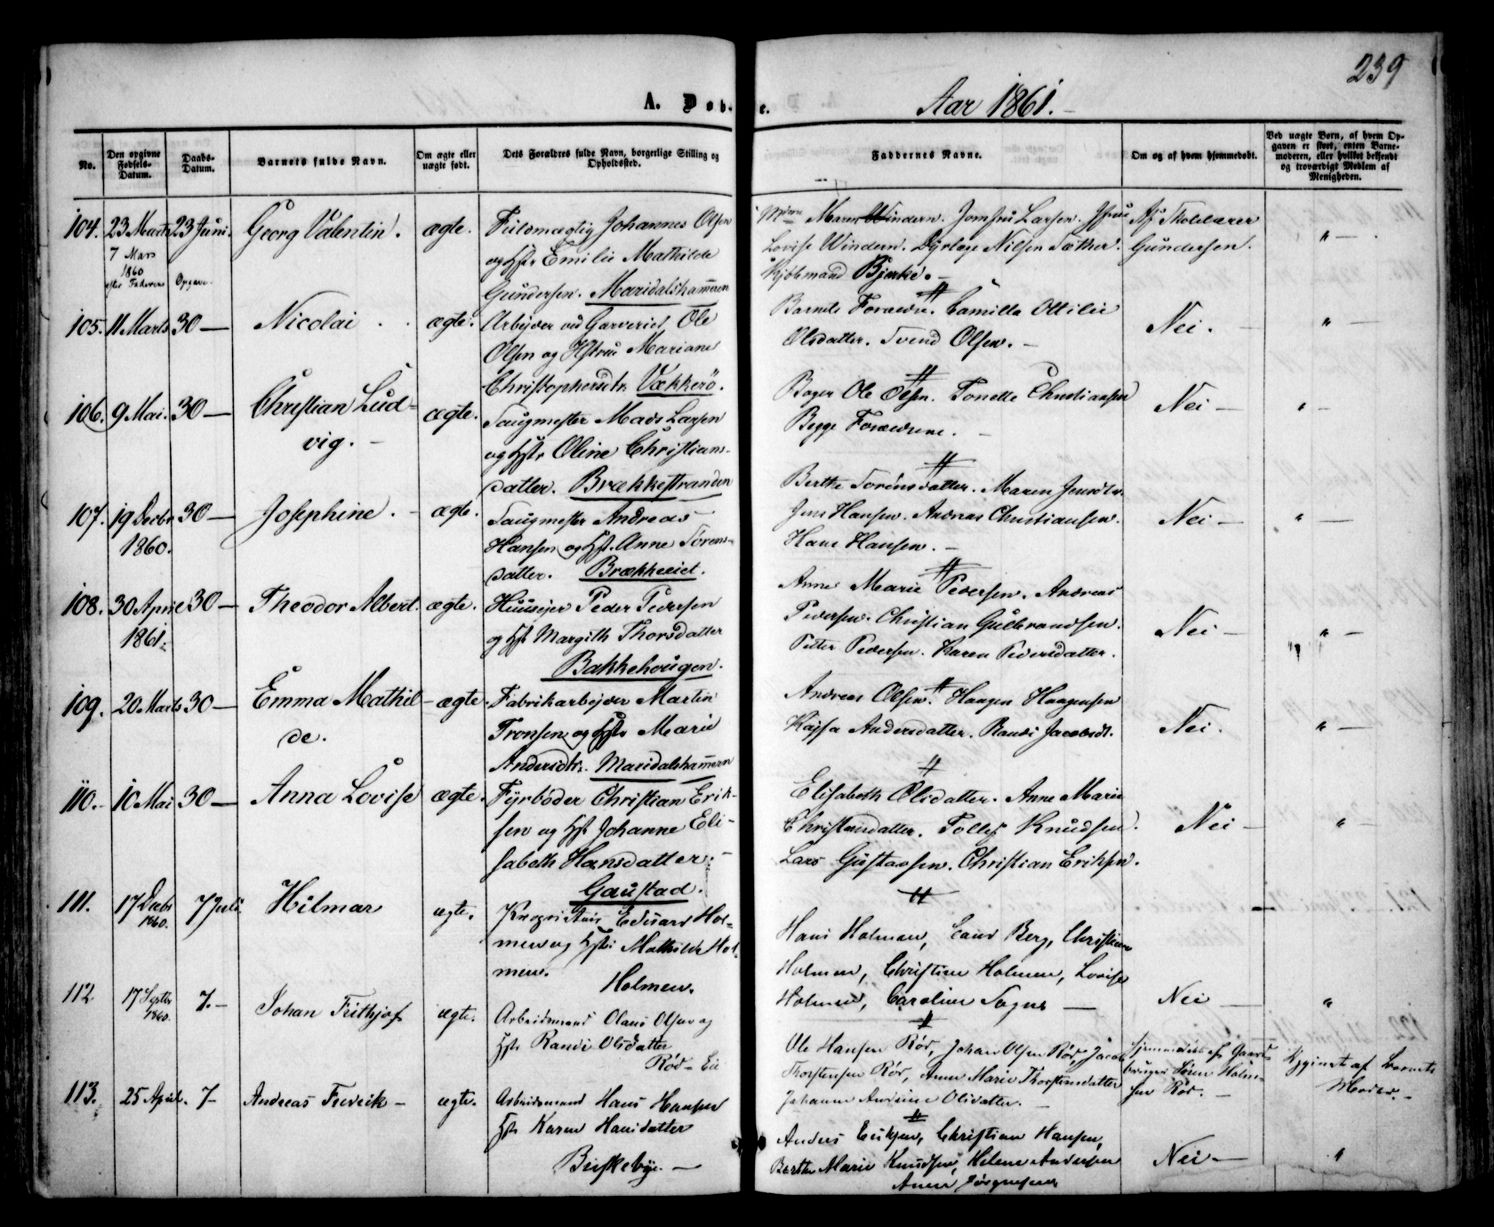 239
A. Døb-
e.
Aar 1861.-
No.
Den opgivne Fødsels-Datum.
Daabs-Datum.
Barnets fulde Navn.
Om ægte eller uægte født.
Dets Forældres fulde Navn, borgerlige Stilling og Opholdssted.
Faddernes Navne.
Om og af hvem hjemmedøbt.
Ved uægte Børn, af hvem Opgaven er skeet, enten Barnemoderen, eller hvilket bekjendt og troværdigt Medlem af Menigheden.
104. 23 Marts 23 Juni. Georg Valentin. ægte. Fuldmægtig Johannes Olsen
7 Mars 1860 efter Faderens Opgave.
og Hstr Emilie Mathilde
Gundersen. Maridalshammeren
Maren Windern. Jomfru Larsen.
Lovise Windern. Nilsen Sæther.
Kjøbmand Bjerke.-
Af Toldkasserer
Gundersen.
" -
105. 11 Marts 30 — Nicolai . . ægte. Arbejder ved Garveriet, Ole
Olsen og Hstru Mariane
Christophersdtr. Vækkerö.
Barnets Forældre. Camilla Ottilie
Olsdatter. Svend Olsen.-
Nei. -
" -
106. 9 Mai. 30 — Christian Lud-
vig.-
ægte. Saugmester Mads Larsen
og Hstr Oline Christians-
datter. Brækkestranden
Bager Ole Olsen. Tonette Christiansen
Begge Forældrene. -
Nei -
" -
107. 19 Decbr 1860. 30 — Josephine. - ægte. Saugmester Andreas
Hansen og Hstr. Anne Sørens-
datter. Brækkeeiet.
Berthe Sørensdatter. Maren Jensdtr.
Jens Hansen. Andreas Christiansen.
Hans Hansen. -
Nei -
" -
108. 30 April 1861. 30 — Theodor Albert. ægte. Huuseier Peder Pedersen
og Hstr Margith Thorsdatter
Bakkehougen.
Anne Marie Pedersen. Andreas
Pedersen. Christian Gulbrandsen.
Petter Pedersen. Karen Pedersdatter.
Nei -
" -
109. 20 Marts 30 — Emma Mathil-
de.
ægte. Fabrikarbejder Martin
Tronsen og Hstr Marie
Andersdtr. Maridalshammern
Andreas Olsen. Haagen Haagensen
Kajsa Andersdatter. Randi Jacobsdt.
Nei.
" -
110.- 10 Mai 30 — Anna Lovise ægte. Fyrbøder Christian Erik-
sen og Hstr Johanne Eli-
sabeth Hansdatter.-
Gaustad.
Elisabeth Olsdatter. Anne Marie
Christensdatter. Tollef Knudsen.
Lars Gustavsen. Christian Eriksen.
Nei -
" -
111. 17 Decbr 1860. 7 Juli. Hilmar ægte. Eduard Hol-
men og Hstr Mathilde Hol-
men. Holmen.
Hans Holmen, Berg, Christian
Holmen, Christian Holmen, Lovise
Holmen, Caroline
Nei -
"
112 17 Septbr 1860. 7.- Johan Frithjof ægte. Arbeidsmand Olaus Olsen og
Hstr Randi Olsdatter
Röd-Eie
Ole Hansen Röd, Johan Olsen Röd, Jacob
Thorstensen Röd, Anne Marie Thorstensdatter
Johanne Olsdatter. -
Hjemmedøbt af Gaard-
bruger Søren Holm-
sen Röd. -
Opgivet af Barnets
Moder.-
113. 25 April. 7- Andreas Fredrik - ægte. Arbeidsmand Hans Hansen
Hstr Karen Hansdatter
Biskebye. -
Anders Eriksen, Christian Hansen,
Berthe Marie Knudsen, Helene Andersen
Anne Jörgensen
Nei -
"